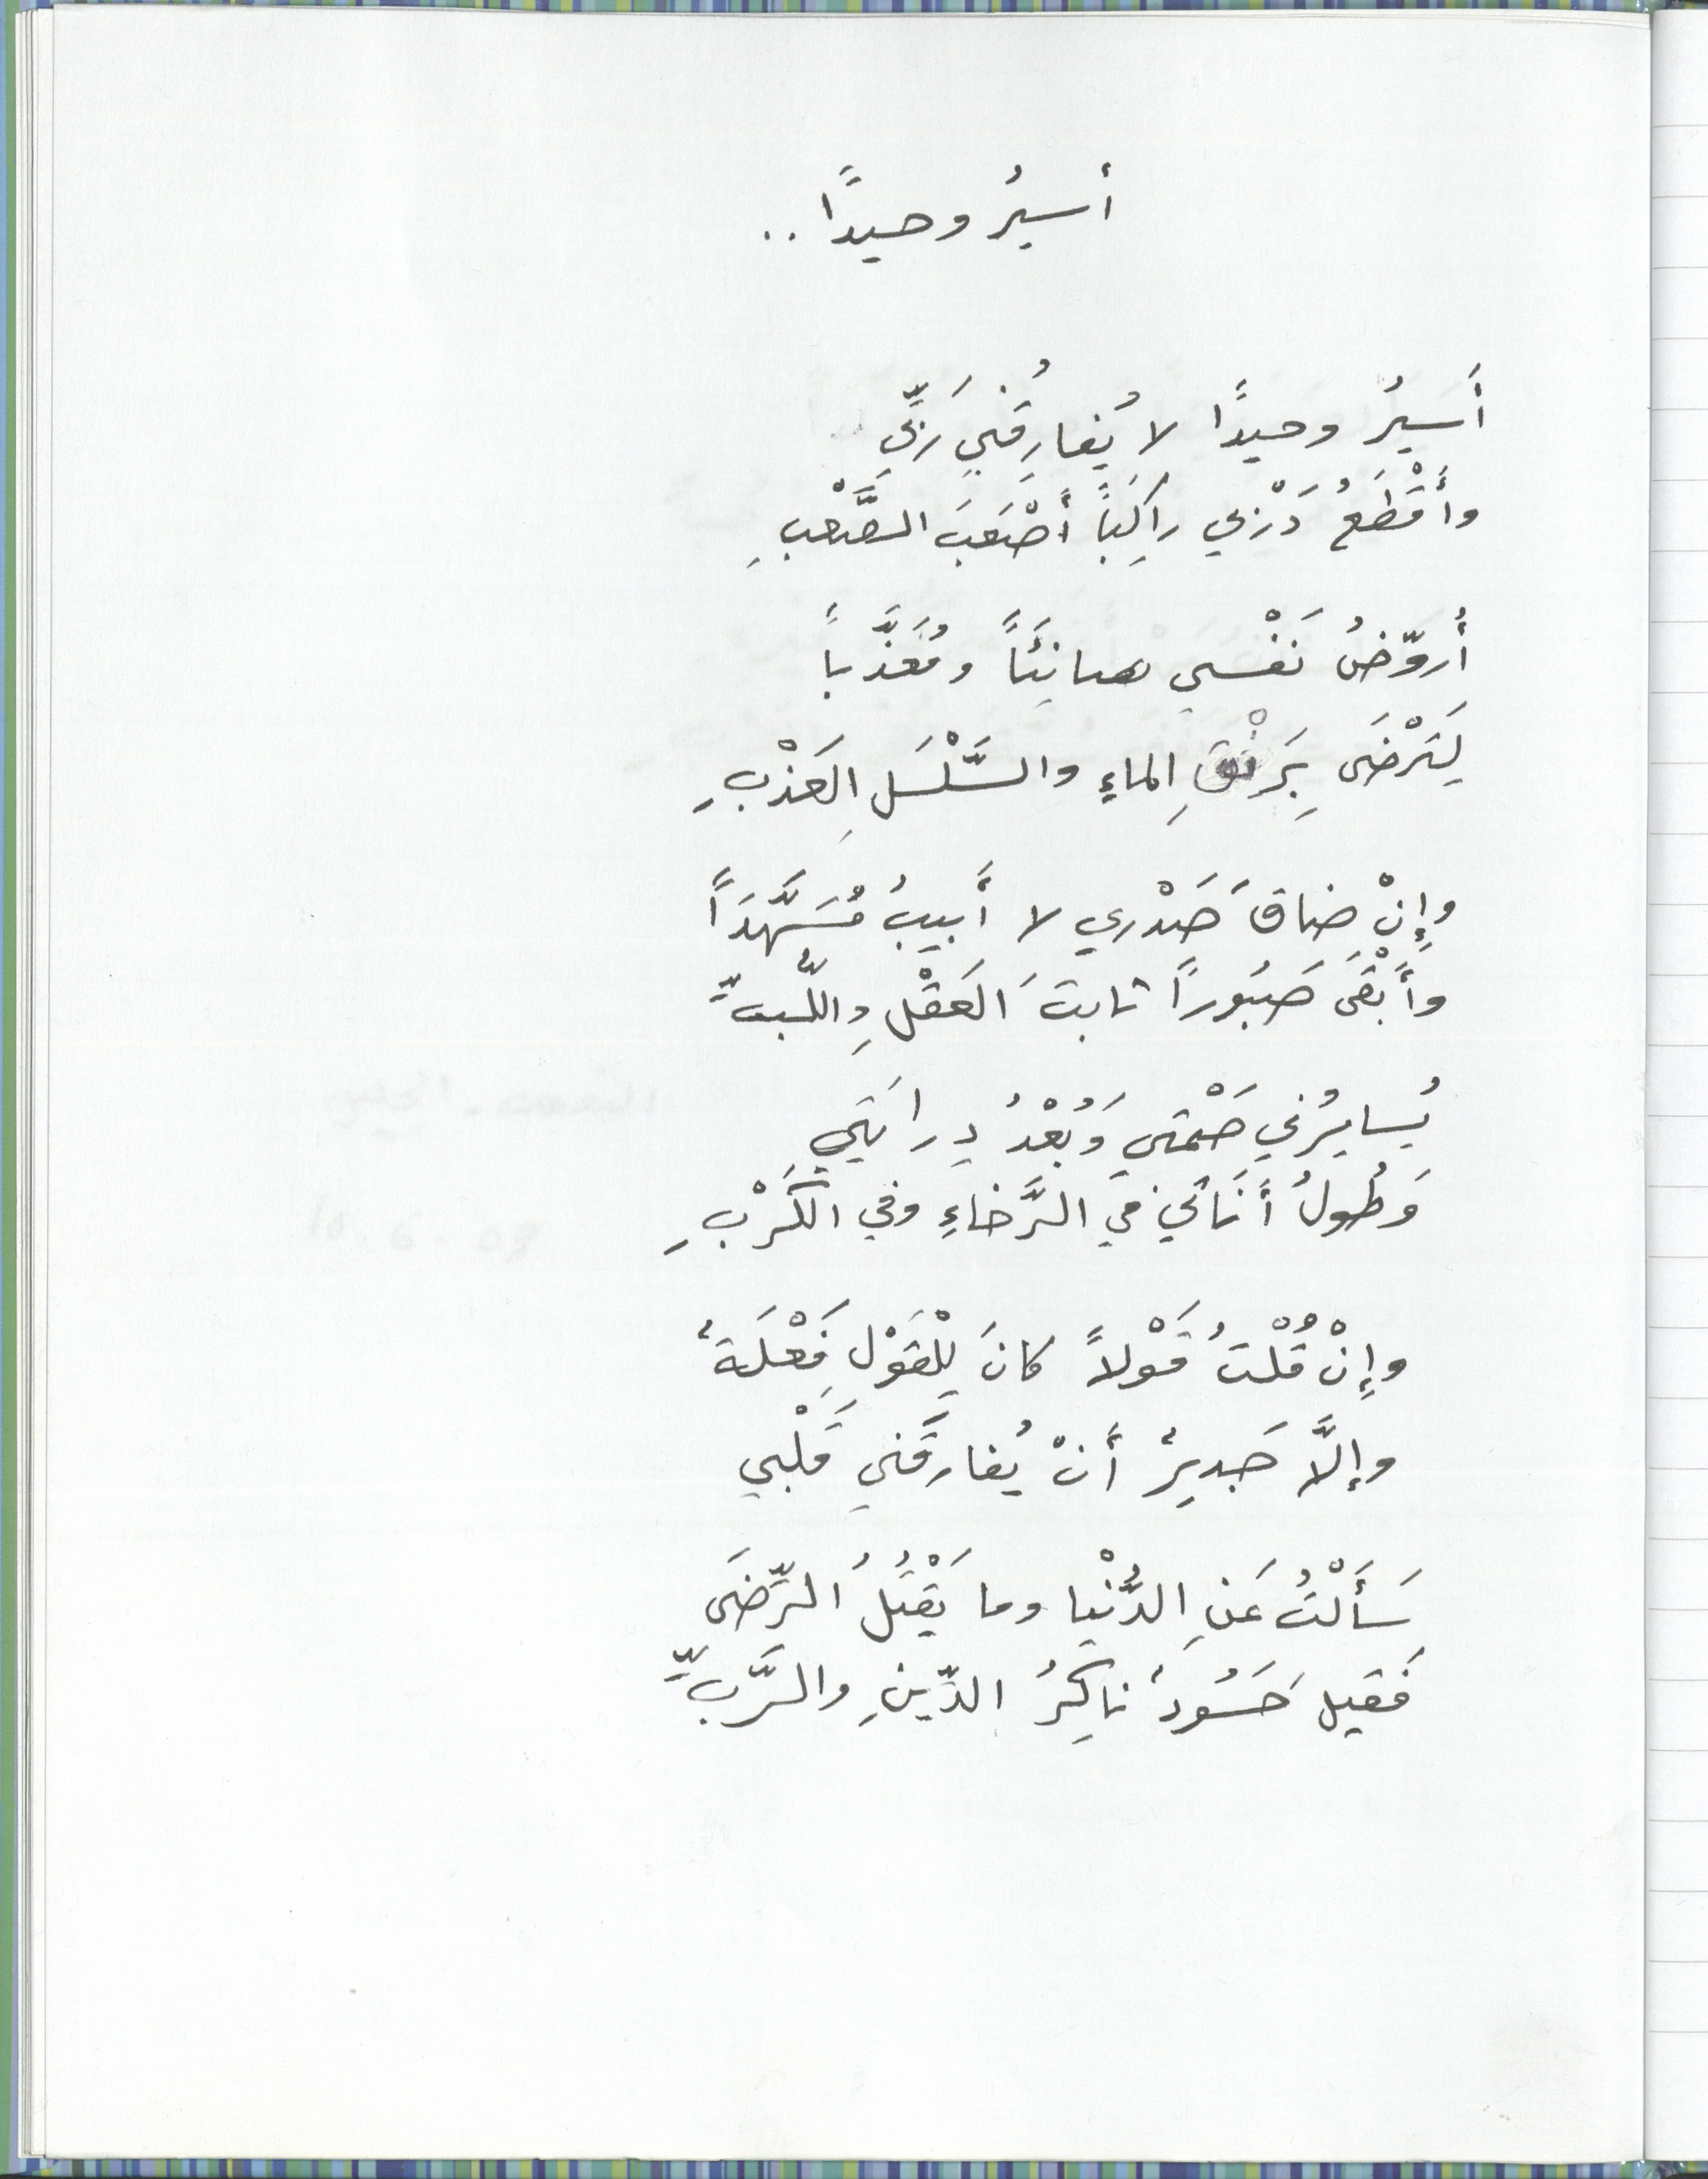 أسيرُ وحيدًا ..
أَسيرُ وحيدًا لا يُفارِقُني رَبِّي
وأَقْطَعُ دَرْبي راكِبَاً أَصْعَبَ الصَّعْبِ
أُروّضُ نَفْسي هانِئَاً ومُعَذَّباً
لِتَرْضَى بِرَنْقِ الماءِ والسَّلْسَلِ العَذْبِ
وإِنْ ضاقَ صَدْري لا أَبيتُ مُسَهَّدَاً
وأَبْقَى صَبُوراً ثابتَ العَقْلِ واللُّبِّ
يُسايرُني صَمْتي وَبُعْدُ دِرايَتي
وَطُولُ أَناتي في الرَّخاءِ وفي الكَرْبِ
وإِنْ قُلْتُ قَوْلاً كانَ لِلْقَوْلِ فَعْلَةٌ
وإلَّا جَديرٌ أَنْ يُفارِقَني قَلْبي
سَأَلْتُ عَنِ الدُّنْيا وما يَقْتُلُ الرِّضَى
فَقيل حَسُودٌ ناكِرُ الدِّينِ والرَّبِّ